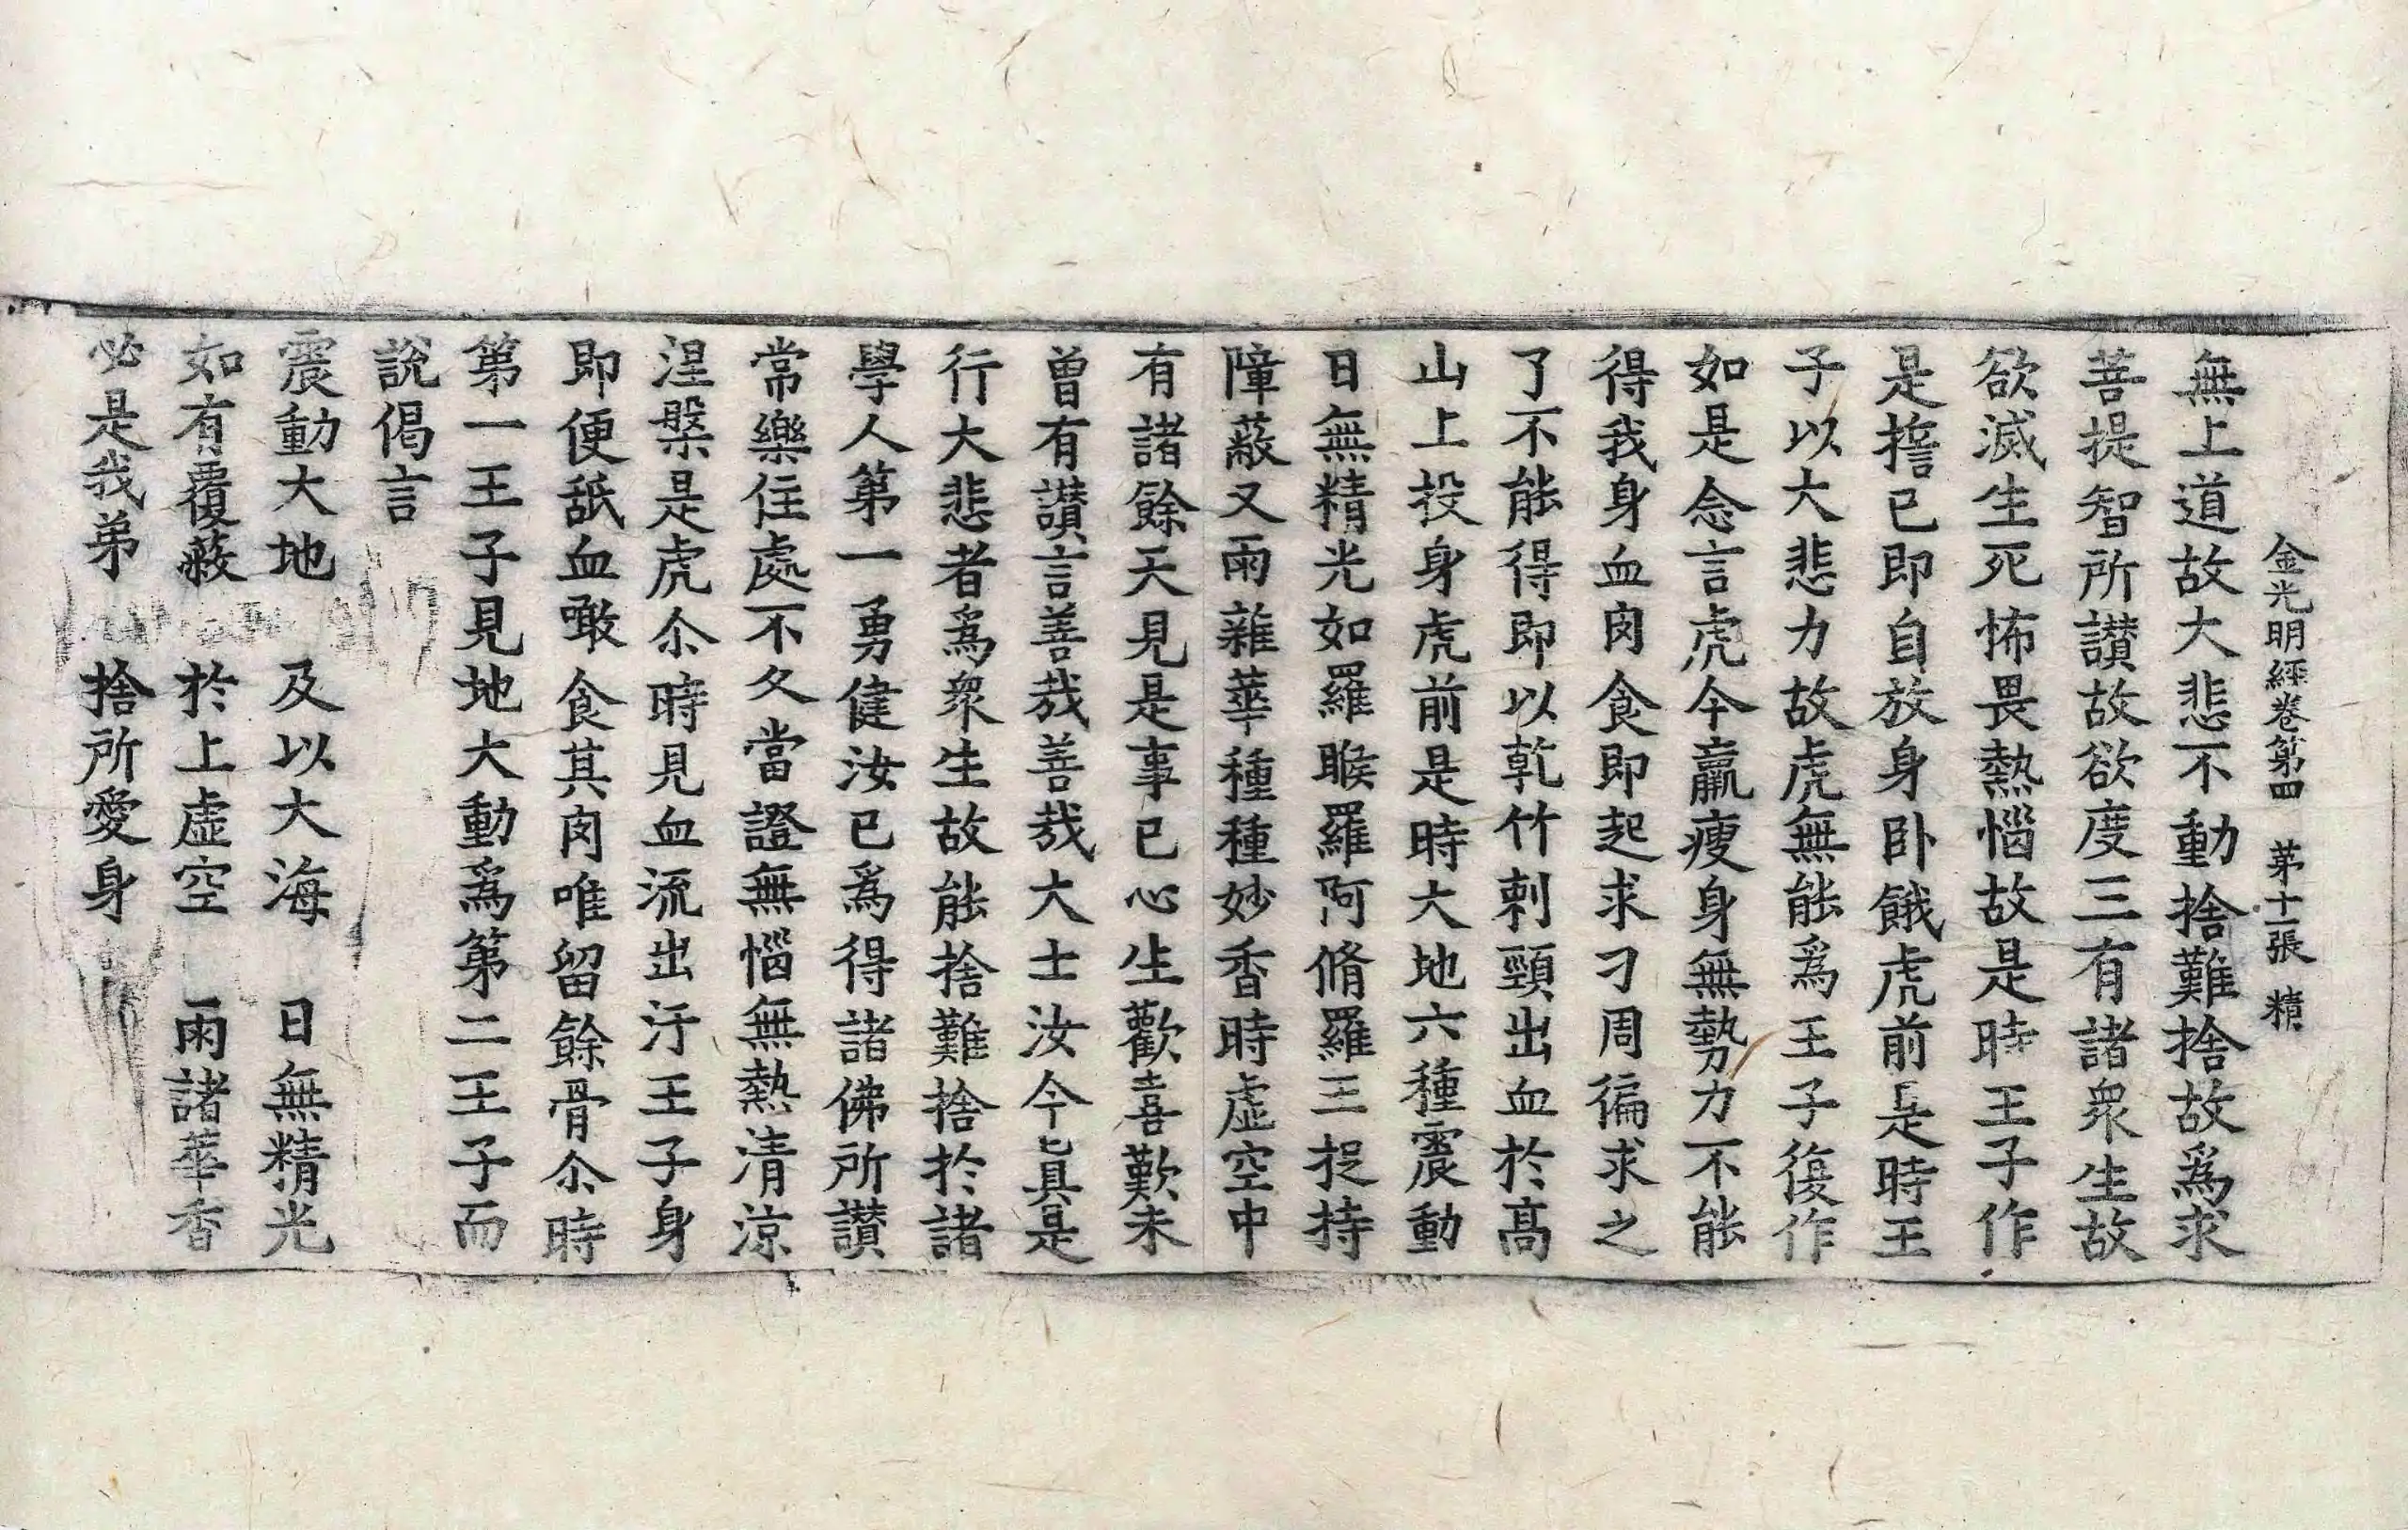 金光明經卷第四　第十一張　精
無上道故大悲不動捨難捨故爲求
菩提智所讃故欲度三有諸衆生故
欲滅生死怖畏熱惱故是時王子作
是誓已即自放身卧餓虎前是時王
子以大悲力故虎無能爲王子復作
如是念言虎今羸瘦身無勢力不能
得我身血肉食即起求刁周徧求之
了不能得即以乾竹刺頸出血於髙
山上投身虎前是時大地六種震動
日無精光如羅睺羅阿脩羅王捉持
障蔽又雨雜華種種妙香時虚空中
有諸餘天見是事已心生歡喜歎未
曽有讃言善哉善哉大士汝今真是
行大悲者爲衆生故能捨難捨於諸
學人第一勇健汝已爲得諸佛所讃
常樂住處不久當證無惱無熱清涼
涅槃是虎尒時見血流出汙王子身
即便舐血噉食其肉唯留餘骨尒時
第一王子見地大動爲第二王子而
說偈言
震動大地　及以大海　日無精光
如有覆蔽　於上虚空　雨諸華香
必是我弟　捨所愛身